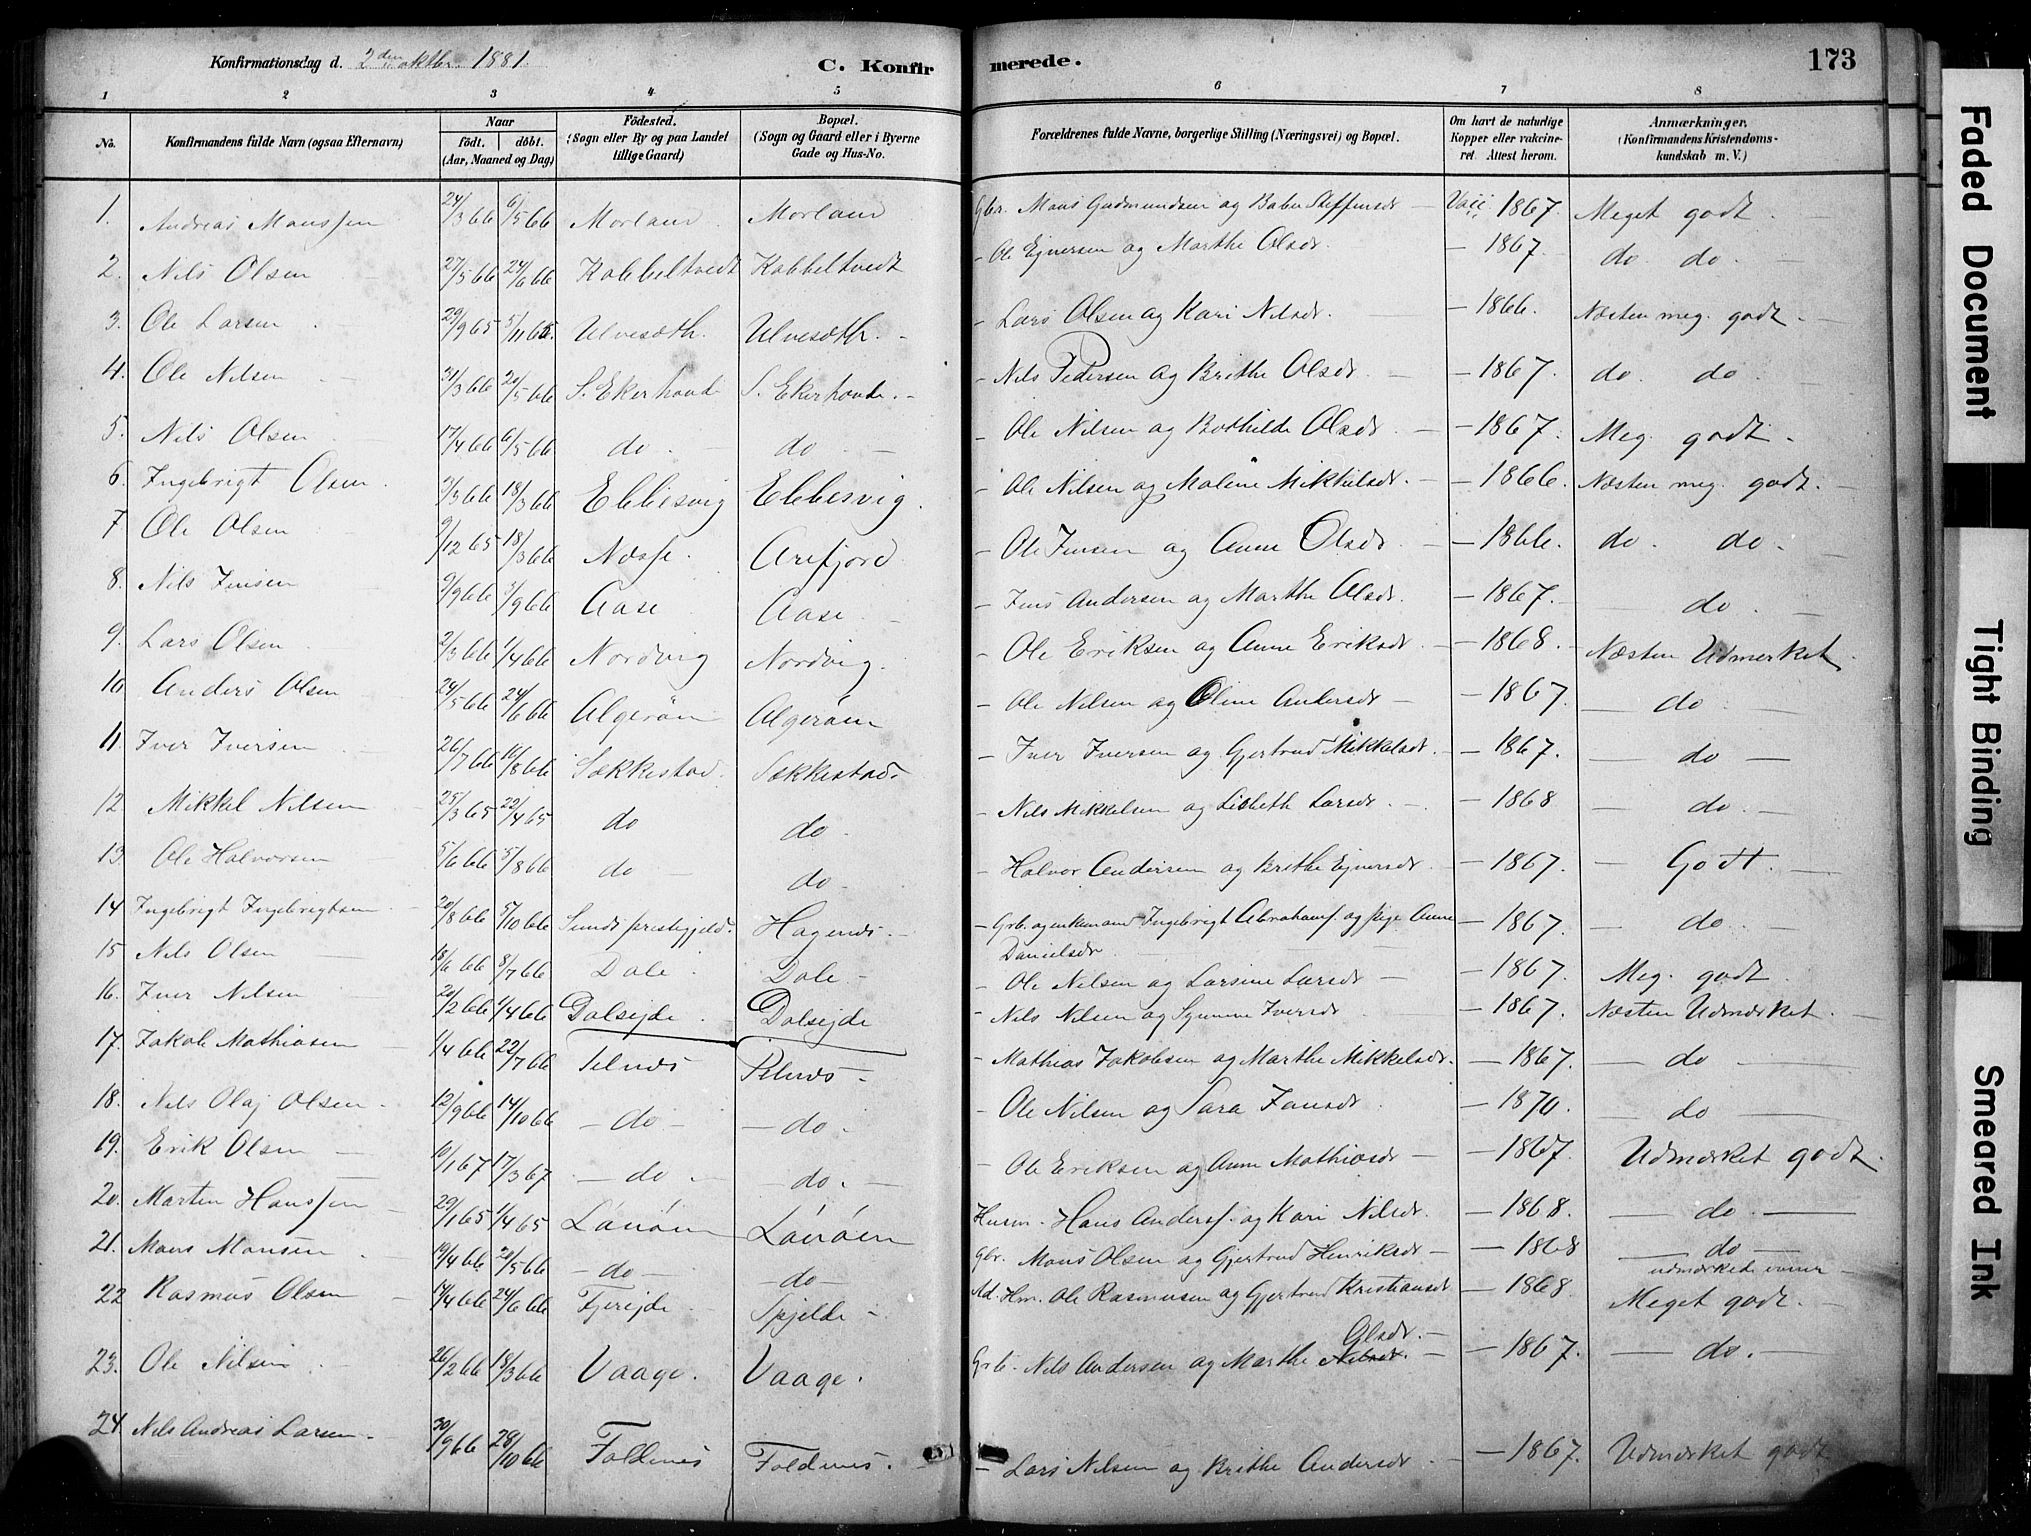 Konfirmationsdag d. 2den oktbr. 1881. C. Konfirmerede. 173
1 2 3 4 5 6 7 8
No. Konfirmandens fulde Navn (ogsaa Efternavn) Naar födt. döbt. (Aar, Maaned og Dag) Födested. (Sogn eller By og paa Landet tillige Gaard) Bopæl. (Sogn og Gaard eller i Byerne Gade og Hus-No. Forældrenes fulde Navne, borgerlige Stilling (Næringsvei) og Bopæl. Om havt de naturlige Kopper eller vakcineret. Attest herom. Anmærkninger. (Konfirmandens Kristendomskundskab m. V.)
1. Andreas Monssen 24/3 66 6/5 66 Morland Morland Gbr. Mons Gudmundsen og Baber Steffensdr Vacc 1867. Meget godt.
2. Nils Olsen 27/5 66 24/6 66 Kobbeltvedt Kobbeltvedt - Ole Ejnersen og Marthe Olsdr. - 1867. do do.
3. Ole Larsen 29/9 65 5/11 65. Ulvesæth. Ulvesæth. - Lars Olsen og Kari Nilsdr. - 1866. Næsten meg. godt.
4. Ole Nilsen 31/3 66 20/5 66 S. Ekerhovde S. Ekerhovde. - Nils Pedersen og Brithe Olsdr. - 1867. do. do.
5. Nils Olsen 17/4 66 6/5 66 do. do. - Ole Nilsen og Bothilde Olsdr. - 1867. Meg. godt.
6. Ingebrigt Olsen. 3/3 66 18/3 66 Ebbesvig Ebbesvig. - Ole Nilsen og Malene Mikkelsdr. - 1866. Næsten meg. godt.
7. Ole Olsen 9/12 65 18/3 66 Næsse. Arefjord - Ole Jensen og Anne Olsdr. - 1866. do. do.
8. Nils Jensen 9/9 66 Aase Aase. - Jens Andersen og Marthe Olsdr. - 1867. - do.
9. Lars Olsen 2/3 66 1/4 66 Nordvig Nordvig. - Ole Eriksen og Anne Eriksdr. - 1868. Næsten Udmerket.
10. Anders Olsen 24/5 66 24/6 66 Algeröen Algeröen - Ole Nilsen og Oline Andersdr - 1867. - do
11. Iver Iversen 26/7 66 Sækkestad. Sækkestad. - Iver Iversen og Gjertrud Mikkelsdr. - 1867. - do -
12. Mikkel Nilsen 25/3 65 22/4 65 do do. - Nils Mikkelsen og Lisbeth Larsdr. - 1868 - do.
13. Ole Halvorsen 5/6 66 5/8 66 do do. - Halvor Andersen og Brithe Ejnersdr. - 1867. - Godt.
14. Ingebrigt Ingebrigtsen 20/8 66 5/10 66 Sunds præstegjeld. Hagenæs. - Grb. og enkemand Ingebrigt Abrahams. og pige Anne Danielsdr - 1867. - do.
15. Nils Olsen 18/6 66 8/7 66 Dale. Dale - Ole Nilsen og Larsine Larsdr - 1867. Meg. godt
16. Iver Nilsen 20/2 66 1/4 66 Dalsejde Dalsejde - Nils Nilsen og Synneve Iversdr - 1867. Næsten Udmærket.
17. Jakob Mathiasen 1/4 66 22/7 66 Telnæs Telnæs. - Mathias Jakobsen og Marthe Mikkelsdr. - 1867. - do -
18. Nils Olaj Olsen. 12/9 66 14/10 66 - do - - do. - Ole Nilsen og Sara Jansdr. - 1870. - do
19. Erik Olsen 10/1 67 17/3 67 - do. - do. - - Ole Eriksen og Anne Mathiasdr - 1867. Udmærket godt.
20. Marten Hanssen 29/1 65 1/4 65 Lönöen Lönöen Husm. Hans Anders. og Kari Nilsdr. - 1868. - do. -
21. Mons Monsen 19/4 66 20/5 66 - do - - do - Gbr. Mons Olsen og Gjertrud Henriksdr - - 1868 - do - udmærkede evner
22 Rasmus Olsen 17/4 66 24/6 66 Fjerejde. Spjelde -. Hm. Ole Rasmusen og Gjertrud Kristiansdr - 1868. Meget godt.
23. Ole Nilsen 26/2 66 18/3 66 Vaage. Vaage. Grb. Nils Andersen og Marthe Nilsdr. Olsdr. - 1867. - do. -
24. Nils Andreas Larsen. 30/9 66 28/10 66 Foldnes Foldnes. - Lars Nilsen og Brithe Andersdr - 1867. Udmærket godt
Faded Document
Tight Binding
Smeared Ink